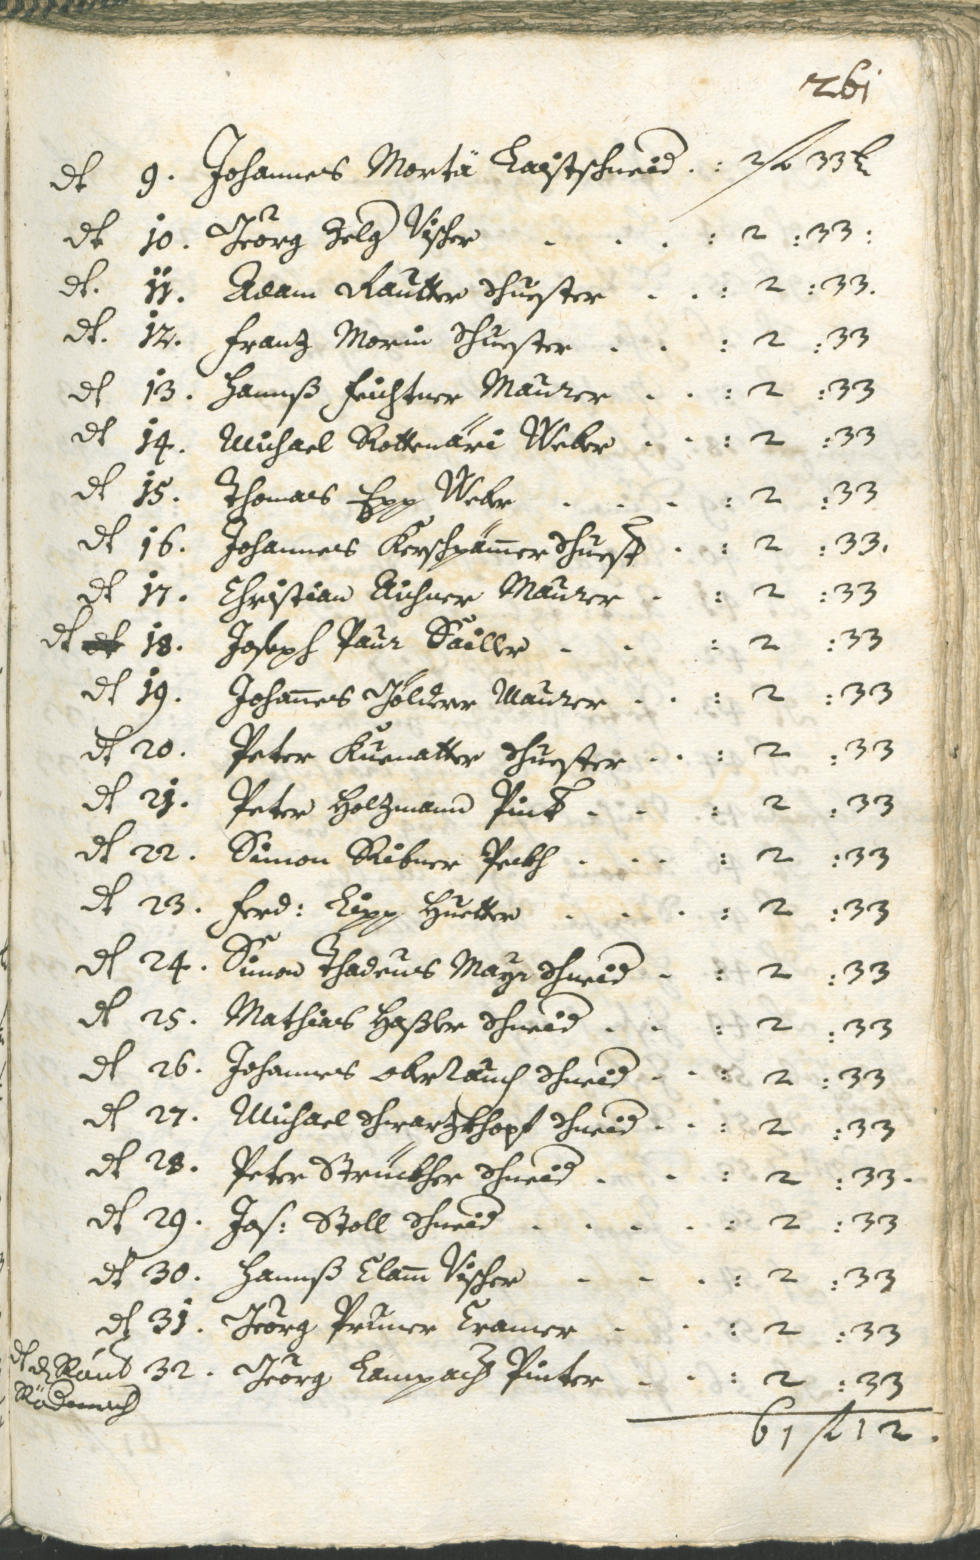 261
dt 9. Johannes Mortä Laistschneid. : 2 f 33 k
dt 10. Georg Zelg Vischer - . . : 2 : 33 :
dt. 11. Adam Rautter Schuester . . : 2 : 33.
dt. 12. Frantz Morin Schuester . . : 2 : 33
dt 13. Hannß Feichtner Maurer . . : 2 : 33
dt 14. Michael Rottenäri Weber - - : 2 : 33
dt 15. Thomas Epp Weber . . . : 2 : 33
dt 16. Johannes Kerschpämer Schuest . : 2 : 33.
dt 17. Christian Aichner Maurer - : 2 : 33
dt 18. Joseph Paur Sailler - - : 2 : 33
dt 19. Johannes Gölderer Maurer . . : 2 : 33
dt 20. Peter Kuenatter Schuester . . : 2 : 33
dt 21. Peter Holtzmann Pint . - : 2 : 33
dt 22. Simon Ribner Peckh . . . : 2 : 33
dt 23. Ferd: Lipp Huetter . . . : 2 : 33
dt 24. Simon Thadeus Mayr Schneid - : 2 : 33
dt 25. Mathias Haßler Schneid . . : 2 : 33
dt 26. Johannes Oberrauch Schneid - - : 2 : 33
dt 27. Michael Schwartzkhopf Schneid . . : 2 : 33
dt 28. Peter Strückher Schneid . . : 2 : 33.
dt 29. Jos: Stoll Schneid . . . . : 2 : 33
dt 30. Hannß Clam Vischer - - . : 2 : 33
dt 31. Georg Pruner Cramer . . : 2 : 33
dt 32. Georg Lampach Pinter . . : 2 : 33
61 f 12.